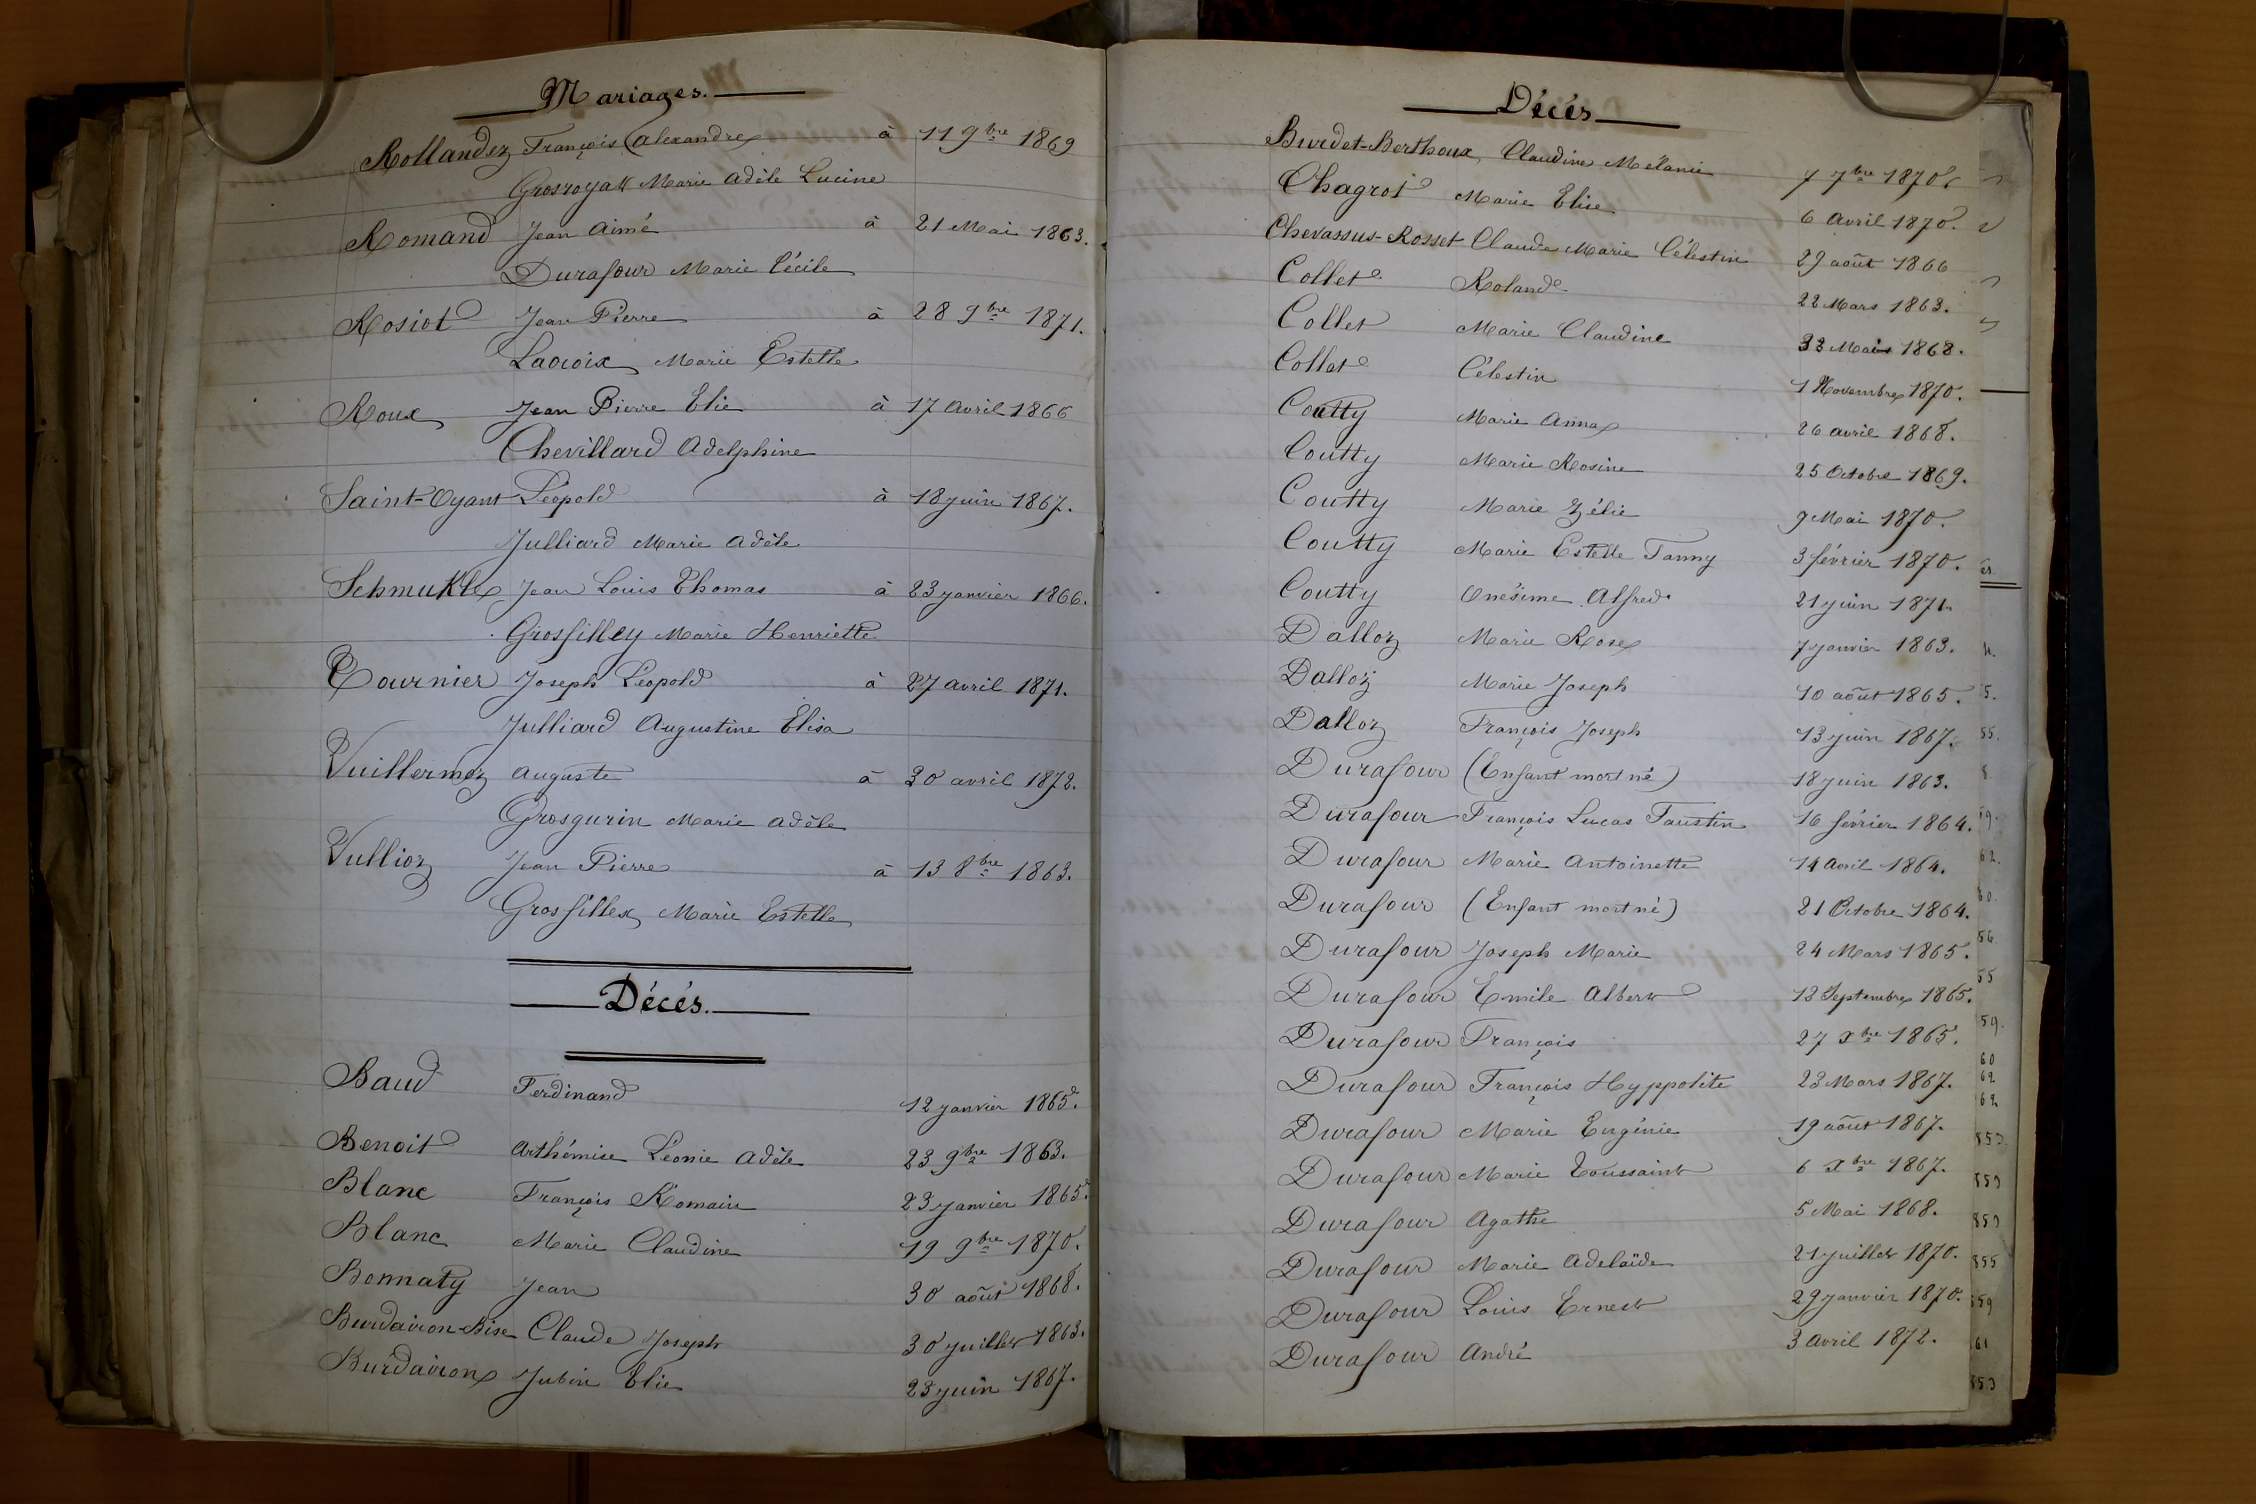 Mariages.
Rollandez François Alexandre à 11 9bre 1869
Grosroyat Marie Adèle Lucine
Romand Jean Aimé à 21 Mai 1863.
Durafour Marie Cécile
Rosiot Jean Pierre à 28 9bre 1871.
Lacroix Marie Estelle
Roux Jean Pierre Elie à 17 Avril 1866
Chevillard Adelphine
Saint-Oyant Léopold à 18 juin 1867.
Julliard Marie Adèle
Schmukle Jean Louis Thomas à 23 janvier 1866.
Grosfilley Marie Henriette
Tournier Joseph Léopold à 27 avril 1871.
Julliard Augustine Elisa
Vuillermoz Auguste à 30 avril 1872.
Grosgurin Marie Adèle
Vullioz Jean Pierre à 13 8bre 1863.
Grosfillex Marie Estelle
Décés.
Baud Ferdinand 12 janvier 1865.
Benoit Arthémise Léonie Adèle 23 9bre 1863.
Blanc François Romain 23 janvier 1865.
Blanc Marie Claudine 19 9bre 1870.
Bonnaty Jean 30 août 1868.
Burdairon-Bise Claude Joseph 30 juillet 1863.
Burdairon Jubin Elie 23 juin 1867.
Décés
Burdet-Berthoux Claudine Mélanie 7 7bre 1870
Chagrot Marie Elise 6 Avril 1870.
Chevassus-Rosset Claude Marie Célestin 29 août 1866
Collet Roland 22 Mars 1863.
Collet Marie Claudine 1868.
Collet Célestin 1 Novembre 1870.
Coutty Marie Anna 26 avril 1868.
Coutty Marie Rosine 25 Octobre 1869.
Coutty Marie Zélie 9 Mai 1870.
Coutty Marie Estelle Fanny 3 février 1870.
Coutty Onésime Alfred 21 juin 1871.
Dalloz Marie Rose 7 janvier 1863.
Dalloz Marie Joseph 10 août 1865.
Dalloz François Joseph 13 juin 1867.
Durafour (Enfant mort né) 18 juin 1863.
Durafour François Lucas Faustin 16 février 1864.
Durafour Marie Antoinette 14 Avril 1864.
Durafour (Enfant mort né) 21 Octobre 1864.
Durafour Joseph Marie 24 Mars 1865.
Durafour Emile Albert 12 Septembre 1865.
Durafour François 27 Xbre 1865.
Durafour François Hyppolite 23 Mars 1867.
Durafour Marie Eugénie 19 août 1867.
Durafour Marie Toussaint 6 Xbre 1867.
Durafour Agathe 5 Mai 1868.
Durafour Marie Adelaïde 21 juillet 1870.
Durafour Louis Ernest 29 janvier 1870.
Durafour André 3 Avril 1872.